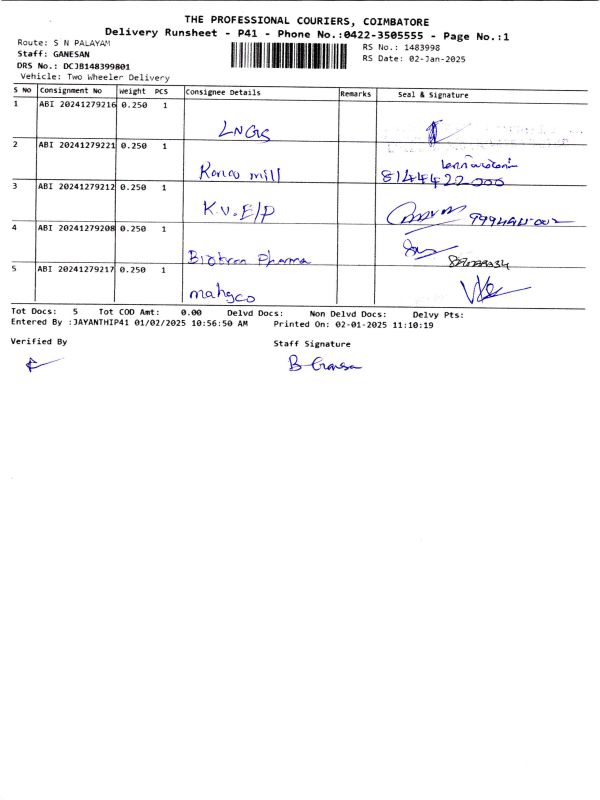 THE PROFESSIONAL COURIERS, COIMBATORE
Delivery Runsheet - P41 - Phone No.:0422-3505555 - Page No.:1
Route: S N PALAYAM
RS No.: 1483998
Staff: GANESAN
RS Date: 02-Jan-2025
DRS No.: DCJB148399801
Vehicle: Two Wheeler Delivery
S No Consignment No Weight PCS Consignee Details Remarks Seal & Signature
1 ABI 20241279216 0.250 1
LNGS
2 ABI 20241279221 0.250 1
mill 8144422000
3 ABI 20241279212 0.250 1
K.V. E/P
4 ABI 20241279208 0.250 1
Biotron Pharma
5 ABI 20241279217 0.250 1
mahgco
Tot Docs: 5 Tot COD Amt: 0.00 Delvd Docs: Non Delvd Docs: Delvy Pts:
Entered By :JAYANTHIP41 01/02/2025 10:56:50 AM Printed On: 02-01-2025 11:10:19
Verified By Staff Signature